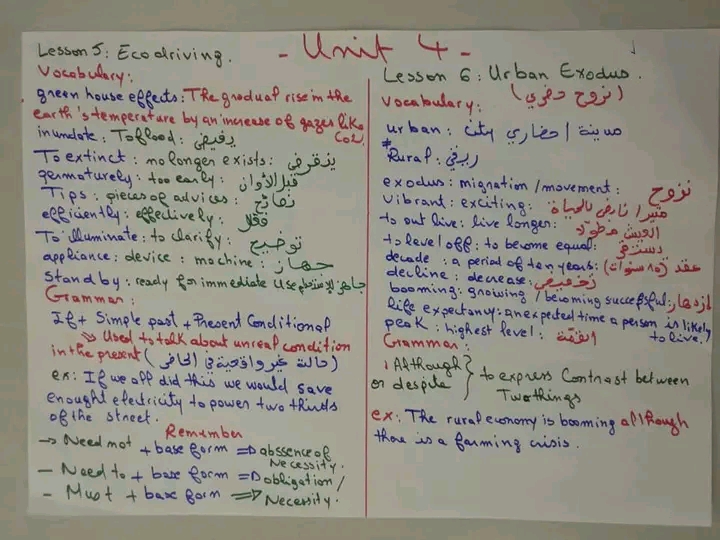 - Unit 4 -
Lesson 5: Ecodriving.
Vocabulary:
green house effects: The gradual rise in the
earth's temperature by an increase of gazes like
CO2.
inundate: To flood: يفيض
To extinct: no longer exists: ينقرض
germaturely: too early: قبل الأوان
Tips: pieces of advices: نصائح
efficiently: effectively:
To illuminate: to clarify: توضيح
appliance: device: machine: جهاز
Stand by: ready for immediate use جاهز للاستعمال
Grammar:
If + Simple past + Present Conditional
Used to talk about unreal condition
in the present (حالة غير واقعية في الحاضر)
ex: If we all did this we would save
enought eledricity to power two thirds
of the street.
Remember
→ Need not + base form => abssence of
Necessity.
- Need to + base form => obligation /
- Must + base form => Necessity.
Lesson 6: Urban Exodus.
(نزوح حضري)
Vocabulary:
urban: city حضاري / مدينة
* Rural: ريفي
exodus: migration / movement: نزوح
Vibrant: exciting: بالحياة
to out live: live longer: العيش
to level off: to become equal: يستقر
decade: a period of ten years: عقد (10 سنوات)
decline: decrease:
booming: growing / becoming successful: ازدهار
life expectany: an expected time a person is likely
to live.
peak: highest level: القمة
Grammar:
Although
or despite } to express Contrast between
Two things
ex: The rural economy is booming although
there is a farming crisis.